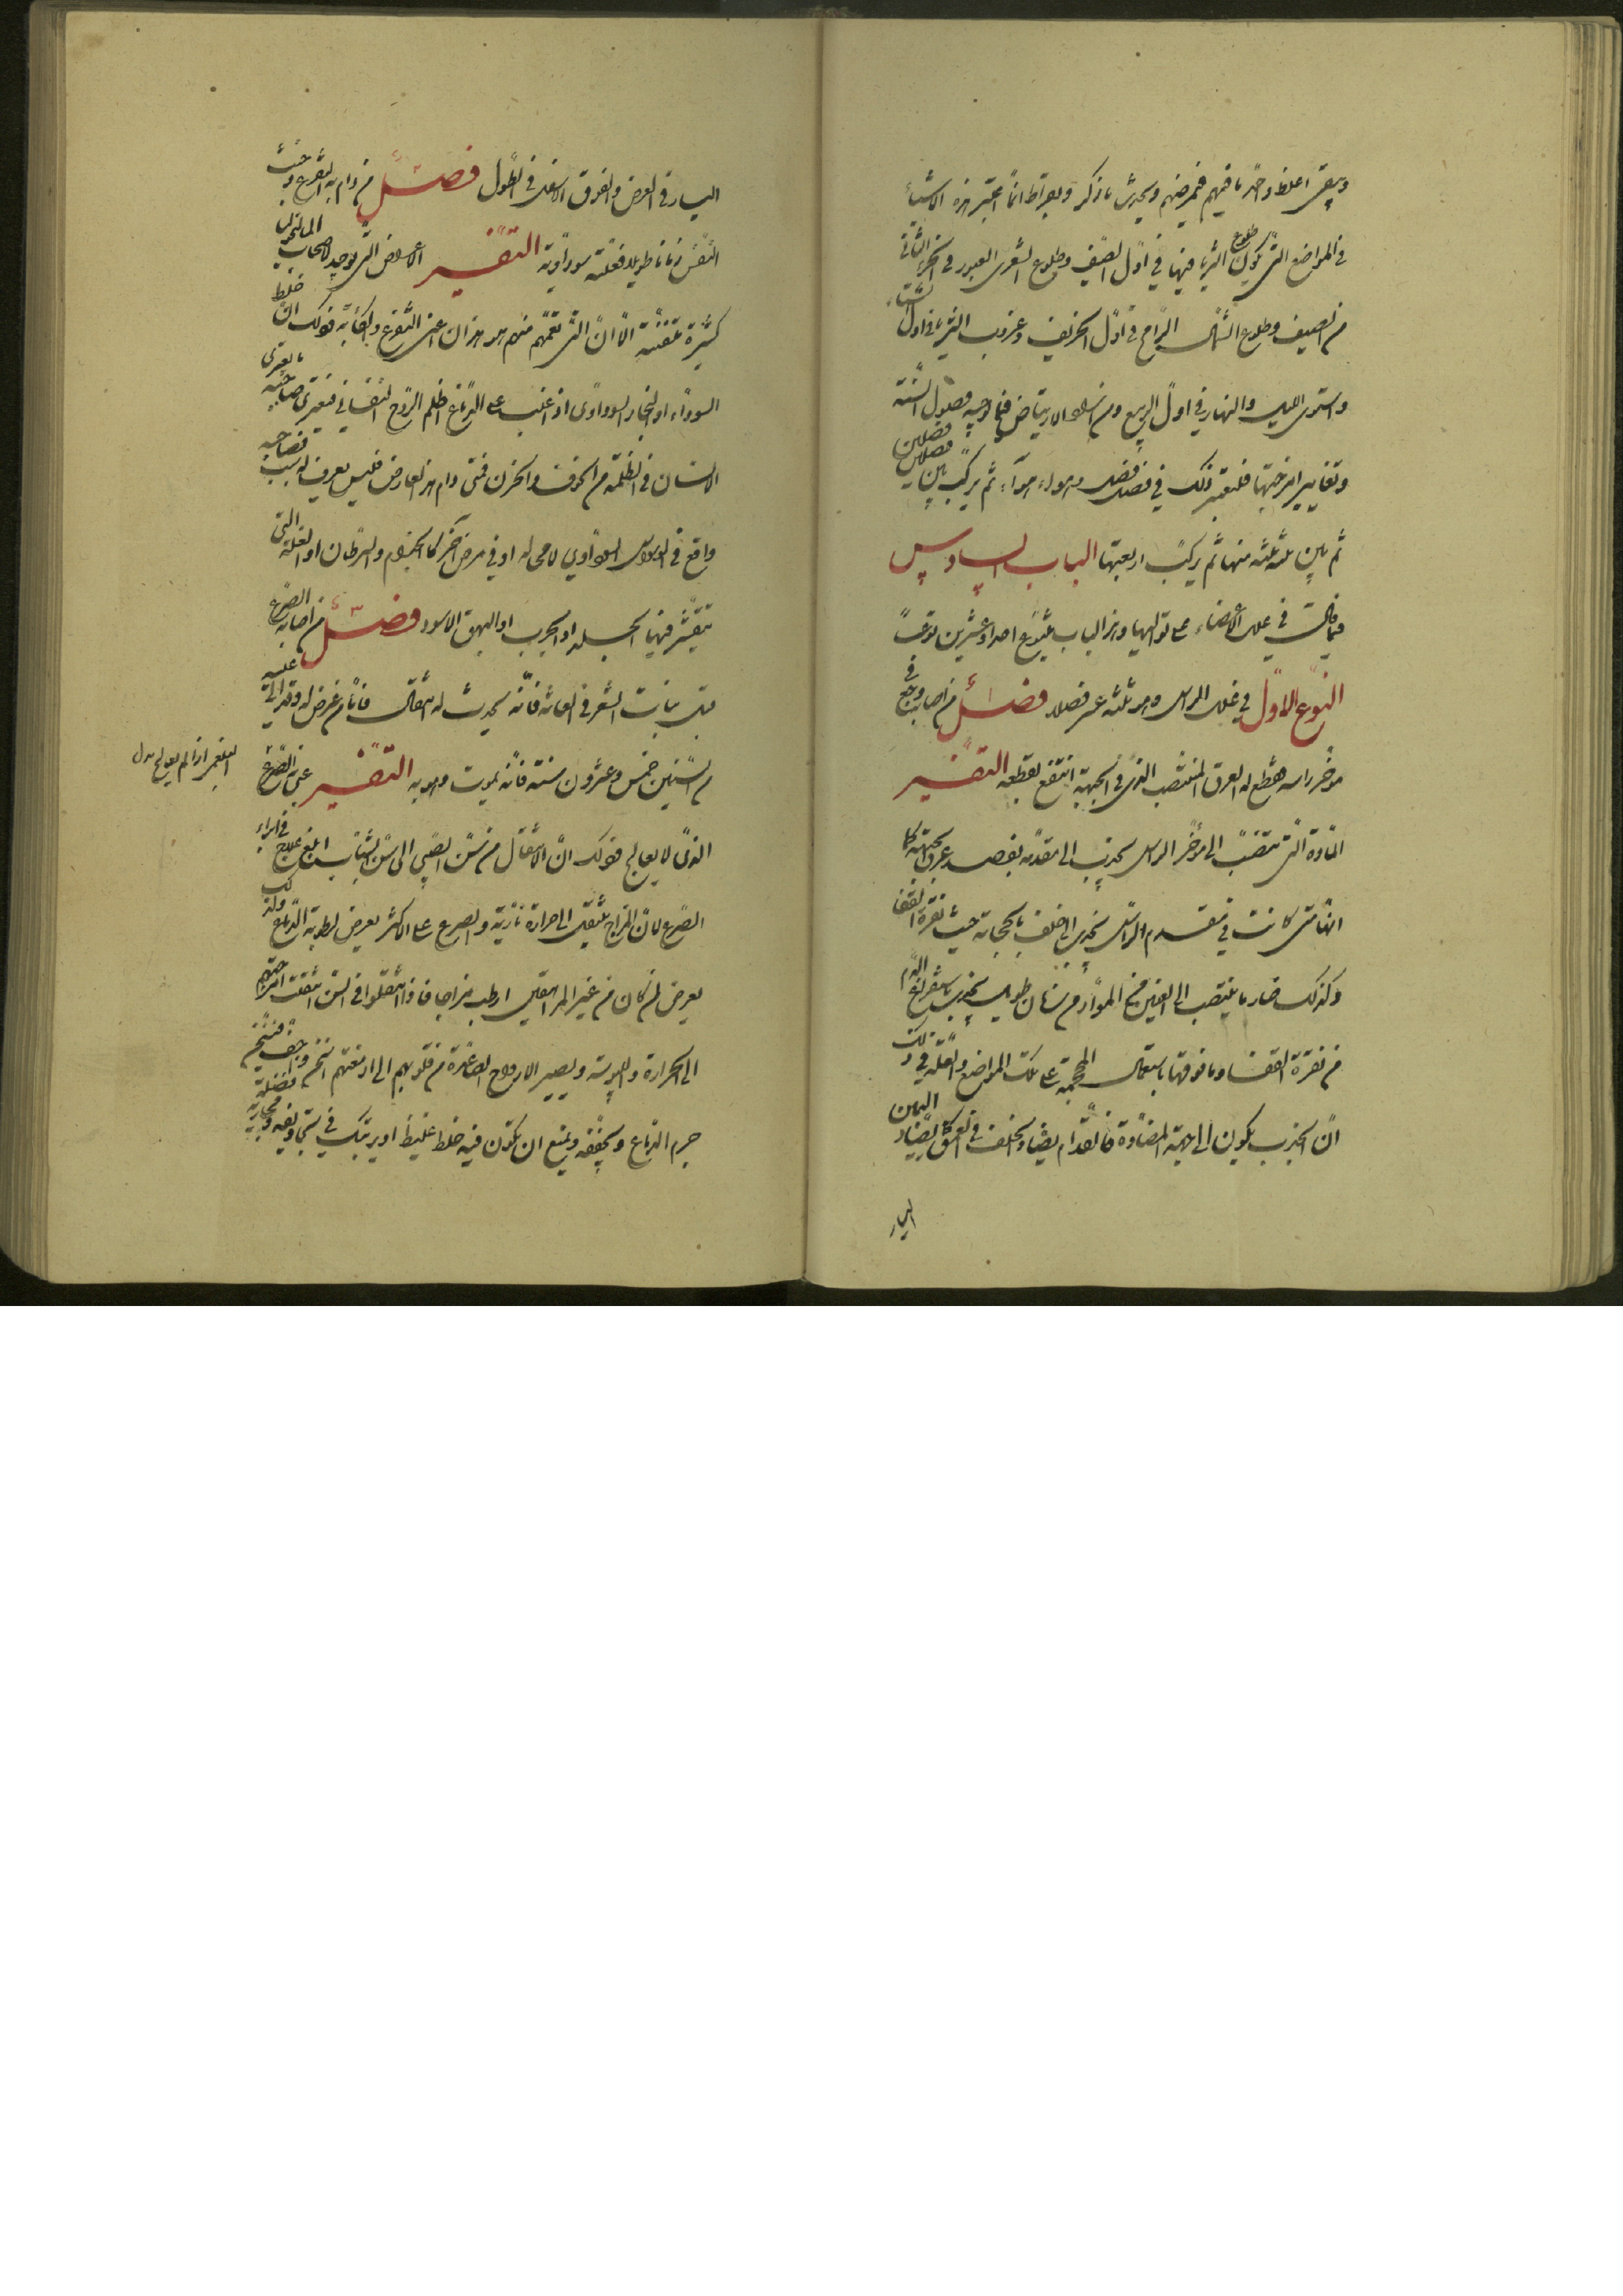 ويبقى اغلظ واحد ما فيهم فيمرضهم ويحدث ما ذكر وبقراط انما يعتبر هذه الاشياء
في المواضع التي يكون طلوع الثريا فيها في اول الصيف وطلوع الشعرى العبور في الجزء الثاني
من الصيف وطلوع السماك الرامح في اول الخريف وغروب الثريا في اول الشتاء
واستوى الليل والنهار في اول الربيع ومن اراد الارتياض فيما يوجبه فصول السنة
وتغايير امزجتها فليعتبر ذلك في فصل فصل وهواء هواء ثم يركب بين فصلين فصلين
ثم بين ثلثة ثلثة منها ثم يركب اربعتها الباب السادس
فيما قال في علل الاعضاء على تواليها وهذا الباب يتنوع احدا وعشرين نوعا
النوع الاول في علل الراس وهو ثلثة عشر فصلا فصل ا من اصابه وجع في
مؤخر راسه فقطع له العرق المنتصب الذي في الجبهة انتفع بقطعه التفسير
المادة التي تنصب الى مؤخر الراس يجذب الى مقدمه بفصد عرق جبهته كما
انها متى كانت في مقدم الراس يجذب الى خلف بالحجامة حيث نقرة القفا
وكذلك صار ما ينصب الى العين من المواد من زمان طويل يجذب باستفراغ الدم
من نقرة القفا وما فوقها باستعمال المحجمة على تلك المواضع والعلة في ذلك
ان الجذب يكون الى الجهة المضادة فالقدام يضاد الخلف في العمق واليمين يضاد
اليسار
اليسار في العرض والفوق الاسفل في الطول فصل من دام به التفزع وخبث
النفس زمانا طويلا فعلته سوداوية التفسير الاعراض التي توجد لاصحاب المالنخوليا
كثيرة متفننة الا ان التي تعمهم منها هو هذان اعني التفزع والكآبة فذلك ان خلط
السوداء او البخار السوداوي اذا غلب على الدماغ اظلم الروح النفساني فيعتري صاحبه ما يعتري
الانسان في الظلمة من الخوف والحزن فمتى دام هذا العارض فليس يعرف له سبب فصاحبه
واقع في الوسواس السوداوي لا محالة او في مرض آخر كالجذام والسرطان او العلة التي
يتقشر فيها الجلد او الجرب او البهق الاسود فصل من اصابه الصرع
قبل نبات الشعر في العانة فانه يحدث له انتقال فاما من عرض له وقد اتى عليه
من السنين خمس وعشرون سنة فانه يموت وهو به التفسير عنى بالصرع
البلغمي اذا لم يعالج
الذي لا يعالج فذلك ان الانتقال من سن الصبى الى سن الشباب ابلغ علاج في ابراء
الصرع لان المزاج ينتقل الى حرارة نارية والصرع على الاكثر يعرض لرطوبة الدماغ ولذلك
يعرض لمن كان من غير المراهقين ارطب مزاجا فاذا انتقلوا في السن انتقلت امزجتهم
الى الحرارة واليبوسة ويصير الارواح الصاعدة من قلوبهم الى ادمغتهم اسخن واجف فيسخن
جرم الدماغ ويجففه ويمنع ان يتكون فيه خلط غليظ او يرتبك في تجاويفه ومجاريه فضلة